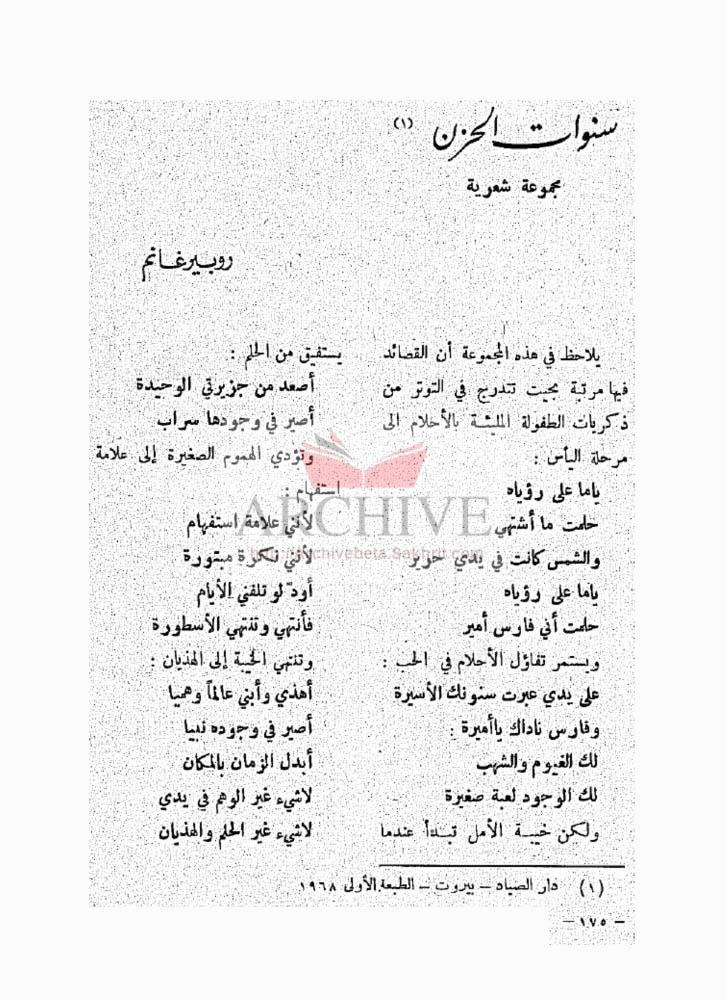 سنوات الحزن (١)
مجموعة شعرية
روبير غانم
يلاحظ في هذه المجموعة أن القصائد
فيها مرتبة بحيث تتدرج في التوتر من
ذكريات الطفولة المليئة بالأحلام الى
مرحلة اليأس :
ياما على رؤياه
حلمت ما أشتهي
والشمس كانت في يدي حرير
ياما على رؤياه
حلمت أني فارس أمير
ويستمر تفاؤل الأحلام في الحب :
على يدي عبرت سنونك الأسيرة
وفارس ناداك ياأميرة :
لك الغيوم والشهب
لك الوجود لعبة صغيرة
ولكن خيبة الأمل تبدأ عندما
يستفيق من الحلم :
أصعد من جزيرتي الوحيدة
أصير في وجودها سراب
وتؤدي الهموم الصغيرة إلى علامة
استفهام :
لأنني علامة استفهام
لأنني نكرة مبتورة
أودّ لو تلفني الأيام
فأنتهي وتنتهي الأسطورة
وتنتهي الخيبة إلى الهذيان :
أهذي وأبني عالماً وهميا
أصير في وجوده نبيا
أبدل الزمان بالمكان
لاشيء غير الوهم في يدي
لاشيء غير الحلم والهذيان
(١) دار الصياد – بيروت – الطبعة الأولى ١٩٦٨
– ١٧٥ –
ARCHIVE
http://Archivebeta.Sakhrit.com